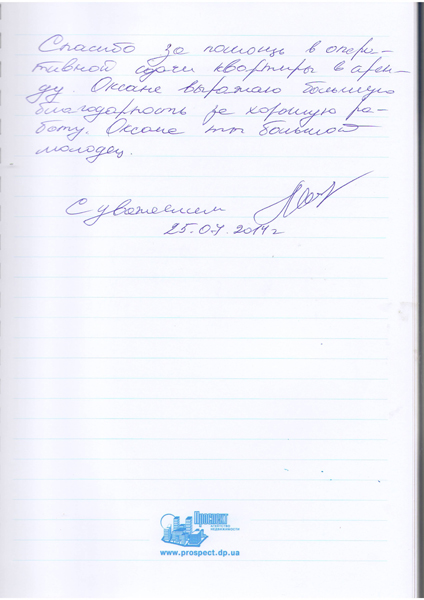 Спасибо за помощь в опера-
тивной сдачи квартиры в арен-
ду. Оксане выражаю большую
благодарность за хорошую ра-
боту. Оксана ты большой
молодец.
С уважением
25.07.2014г
Проспект
АГЕНТСТВО
НЕДВИЖИМОСТИ
www.prospect.dp.ua